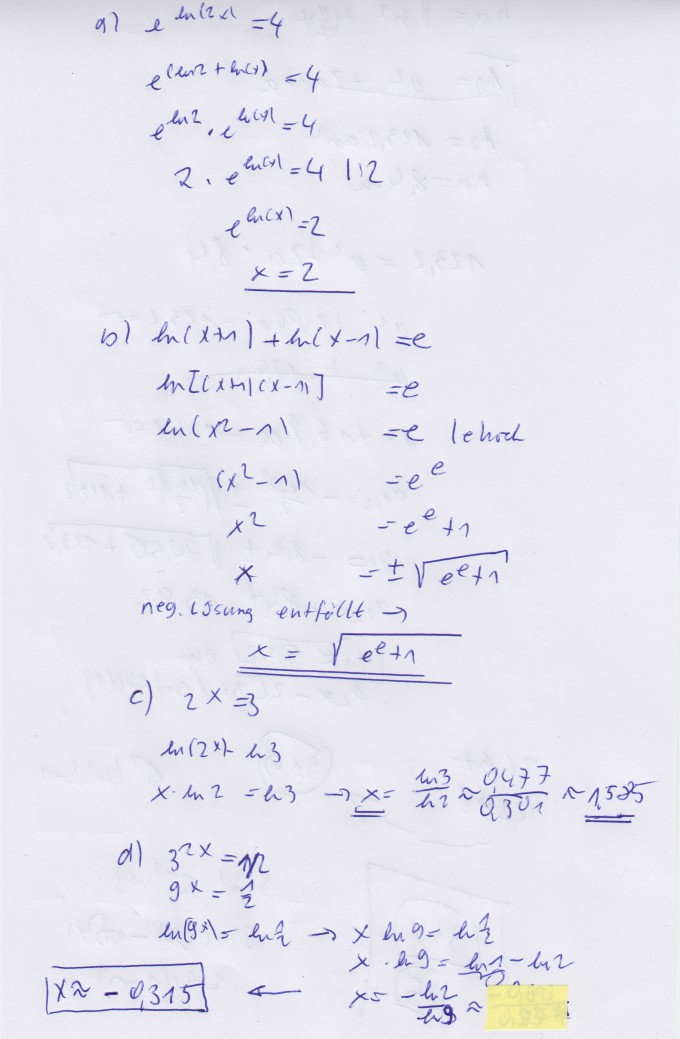 a) e^ln(2x) = 4
e^(ln2 + ln(x)) = 4
e^ln2 · e^ln(x) = 4
2 · e^ln(x) = 4 | :2
e^ln(x) = 2
x = 2
b) ln(x+1) + ln(x-1) = e
ln[(x+1)(x-1)] = e
ln(x²-1) = e | e hoch
(x²-1) = e^e
x² = e^e + 1
x = ± √(e^e+1)
neg. Lösung entfällt →
x = √(e^e+1)
c) 2^x = 3
ln(2^x) = ln3
x · ln2 = ln3 → x = ln3/ln2 ≈ 0,477/0,301 ≈ 1,585
d) 3^2x = 1/2
9^x = 1/2
ln(9^x) = ln 1/2 → x ln9 = ln 1/2
x · ln9 = ln1 - ln2
x ≈ -0,315 ← x = -ln2/ln9 ≈